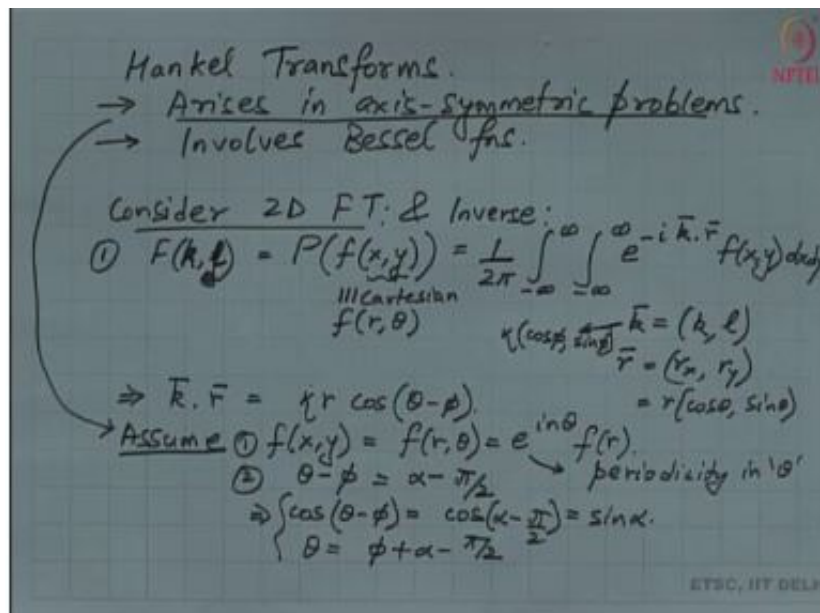 Hankel Transforms.
NPTEL
→ Arises in axis-symmetric problems.
→ Involves Bessel fns.
Consider 2D FT: & Inverse:
① F(k, l) = P(f(x,y)) = 1/2π ∫_{-∞}^{∞} ∫_{-∞}^{∞} e^{-i k̄.r̄} f(x,y) dxdy
||| Cartesian
f(r, θ)
k̄ = (k, l)
η(cosφ, sinφ)
r̄ = (rx, ry)
= r(cosθ, sinθ)
⇒ k̄ . r̄ = η r cos(θ-φ).
Assume ① f(x,y) = f(r, θ) = e^{inθ} f(r).
periodicity in 'θ'
② θ-φ = α-π/2
⇒ { cos(θ-φ) = cos(α-π/2) = sinα.
θ = φ+α-π/2
ETSC, IIT DELH